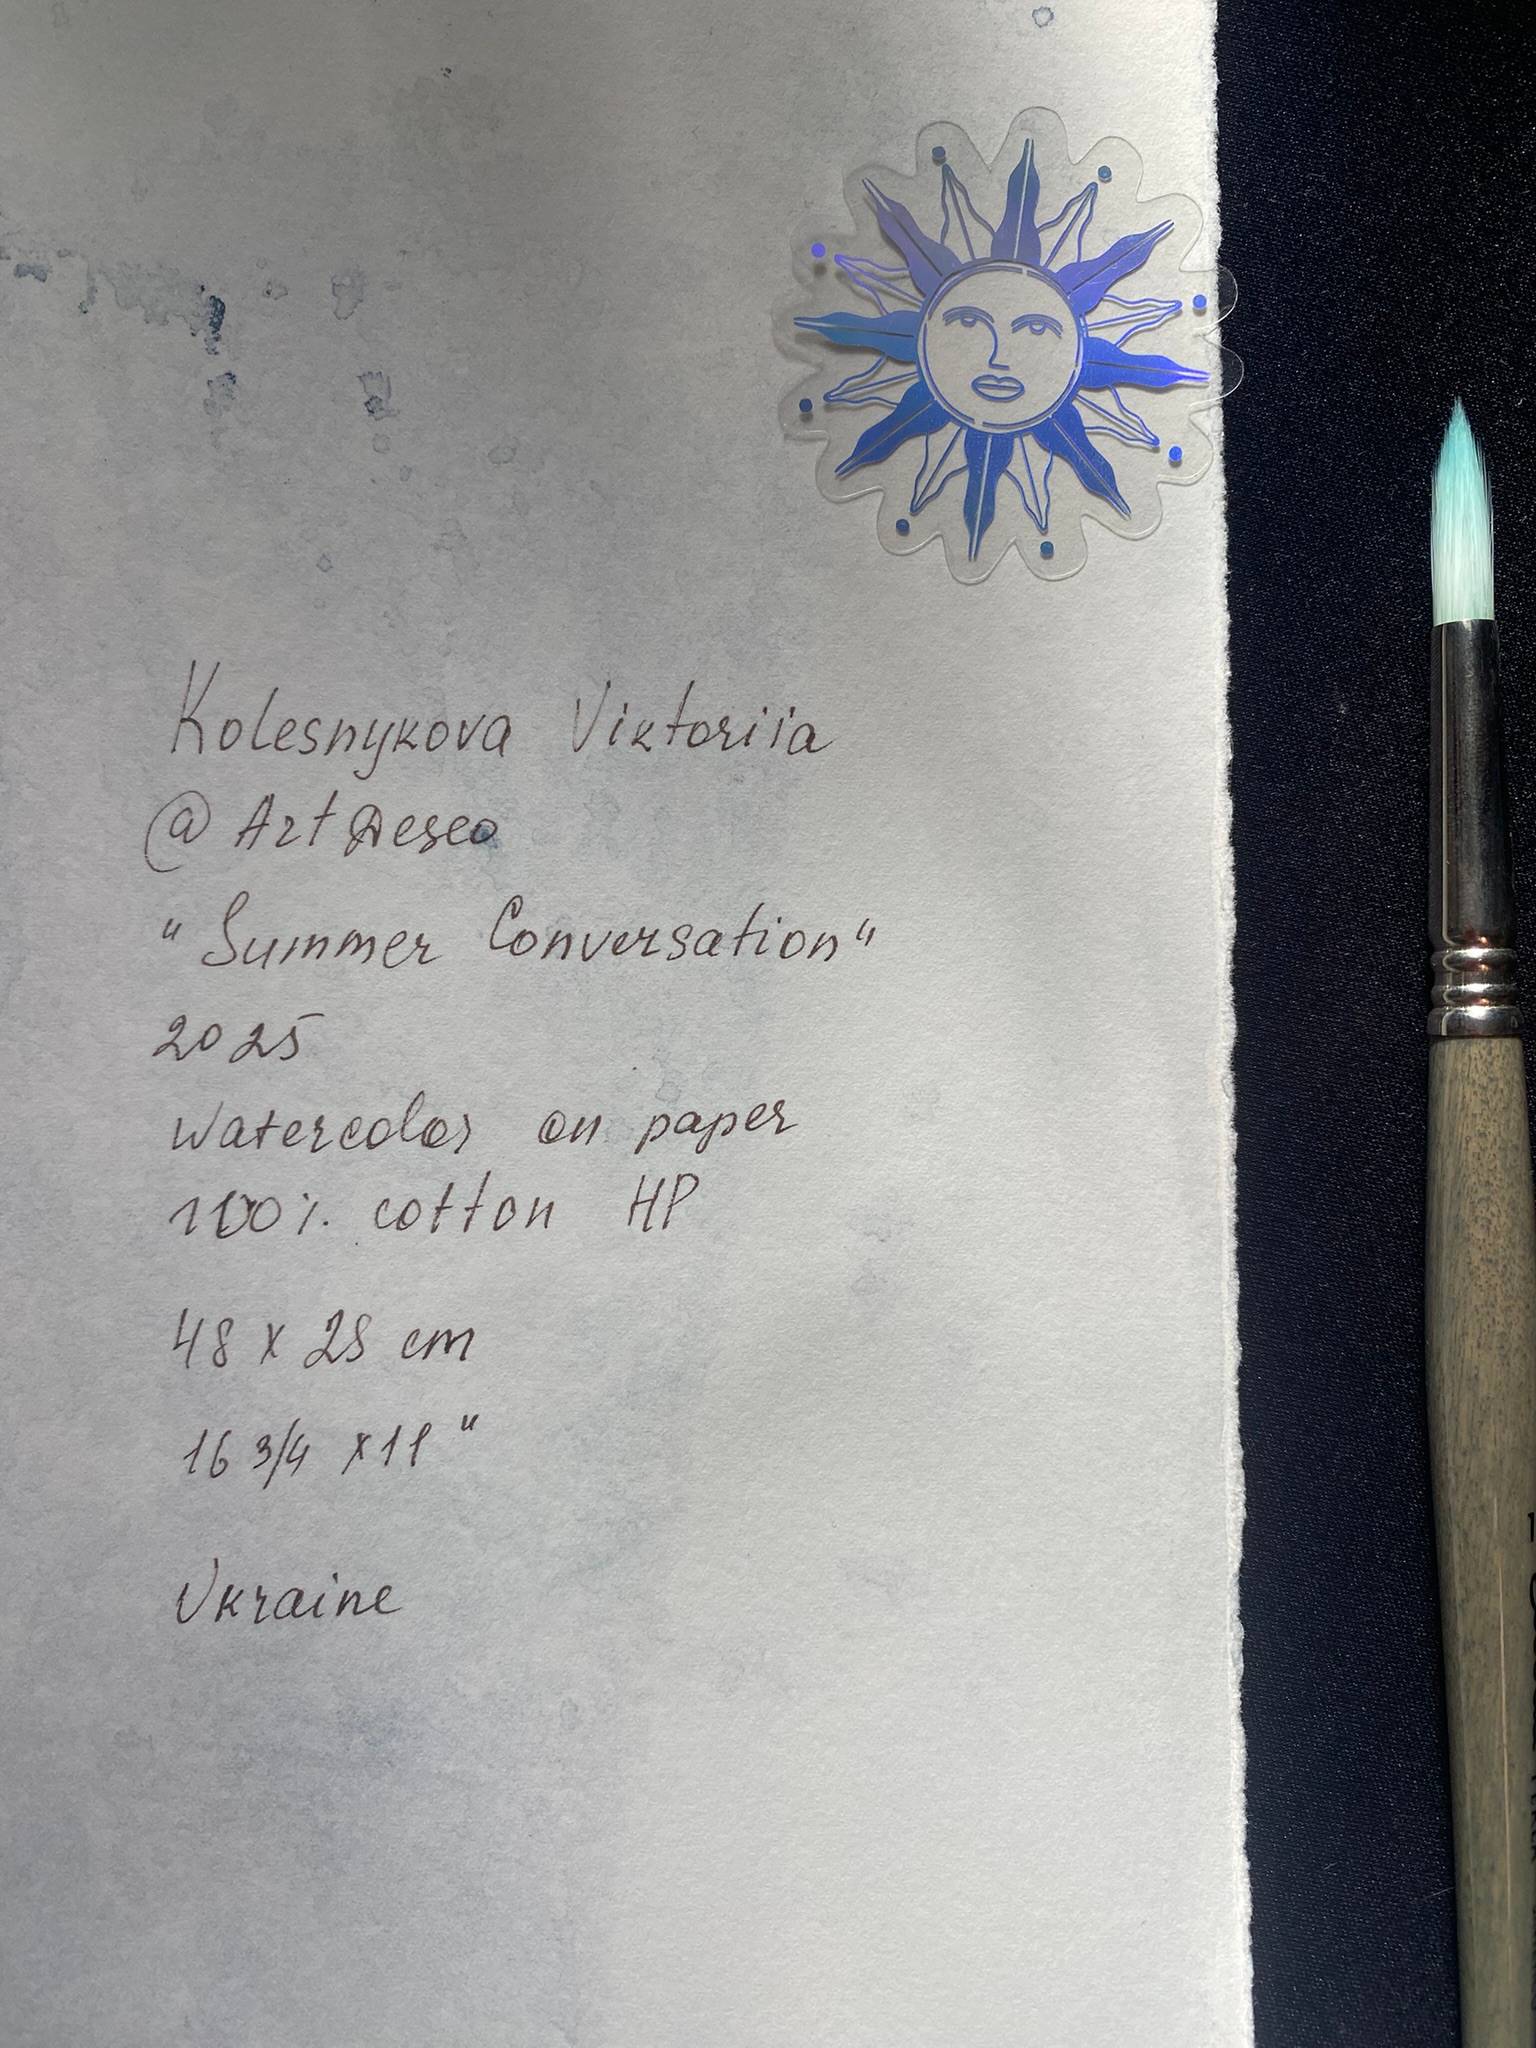 Kolesnykova Viktoriia
@ArtDeseo
"Summer Conversation"
2025
Watercolor on paper
100% cotton HP
48 x 28 cm
16 3/4 x 11"
Ukraine